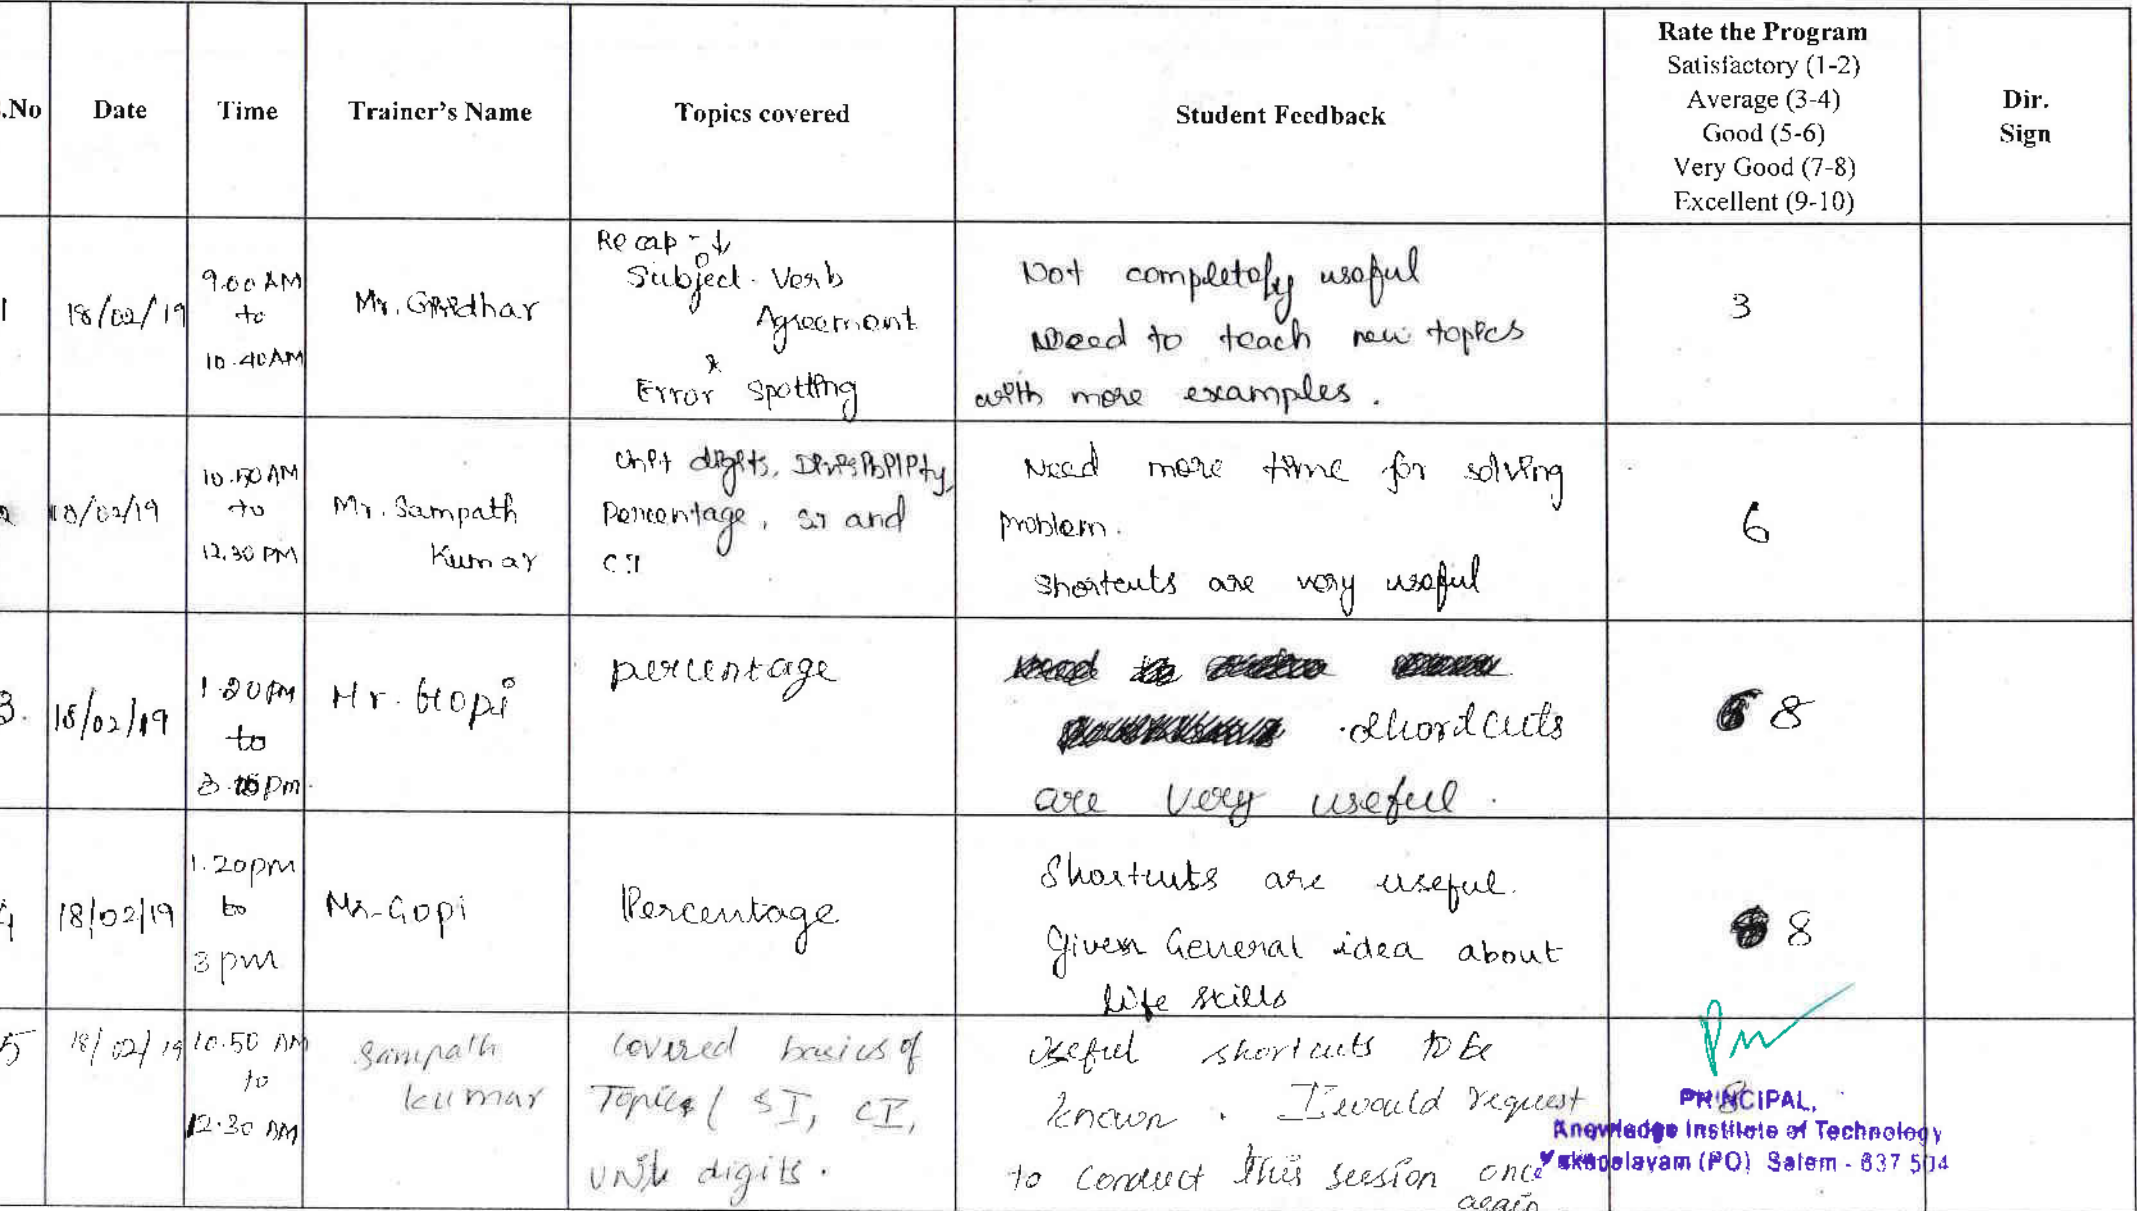 .No
Date
Time
Trainer's Name
Topics covered
Student Feedback
Rate the Program
Satisfactory (1-2)
Average (3-4)
Good (5-6)
Very Good (7-8)
Excellent (9-10)
Dir.
Sign
1
18/02/19
9.00 AM
to
10.40AM
Mr. Giridhar
Recap - ↓
Subject - Verb
Agreement
Error spotting
Not completely useful
Need to teach new topics
with more examples.
3
18/02/19
10.50 AM
to
12.30 PM
Mr. Sampath
Kumar
Unit digits, Divisibility,
Percentage, SI and
CI
Need more time for solving
problem.
shortcuts are very useful
6
3.
18/02/19
1.20 PM
to
Mr. Gopi
percentage
shordcuts
are very useful.
8
4
18/02/19
1.20pm
to
3pm
Mr-Gopi
Percentage
Shortcuts are useful.
Given General idea about
life skills
8
5
18/02/19
10.50 AM
to
12.30 AM
Sampath
kumar
Covered basics of
Topics ( SI, CI,
Unit digits.
Useful shortcuts to be
known. I would request
to conduct this session once
again
8
PRINCIPAL,
Knowledge Institute of Technology
Kakapalayam (PO) Salem - 637 504